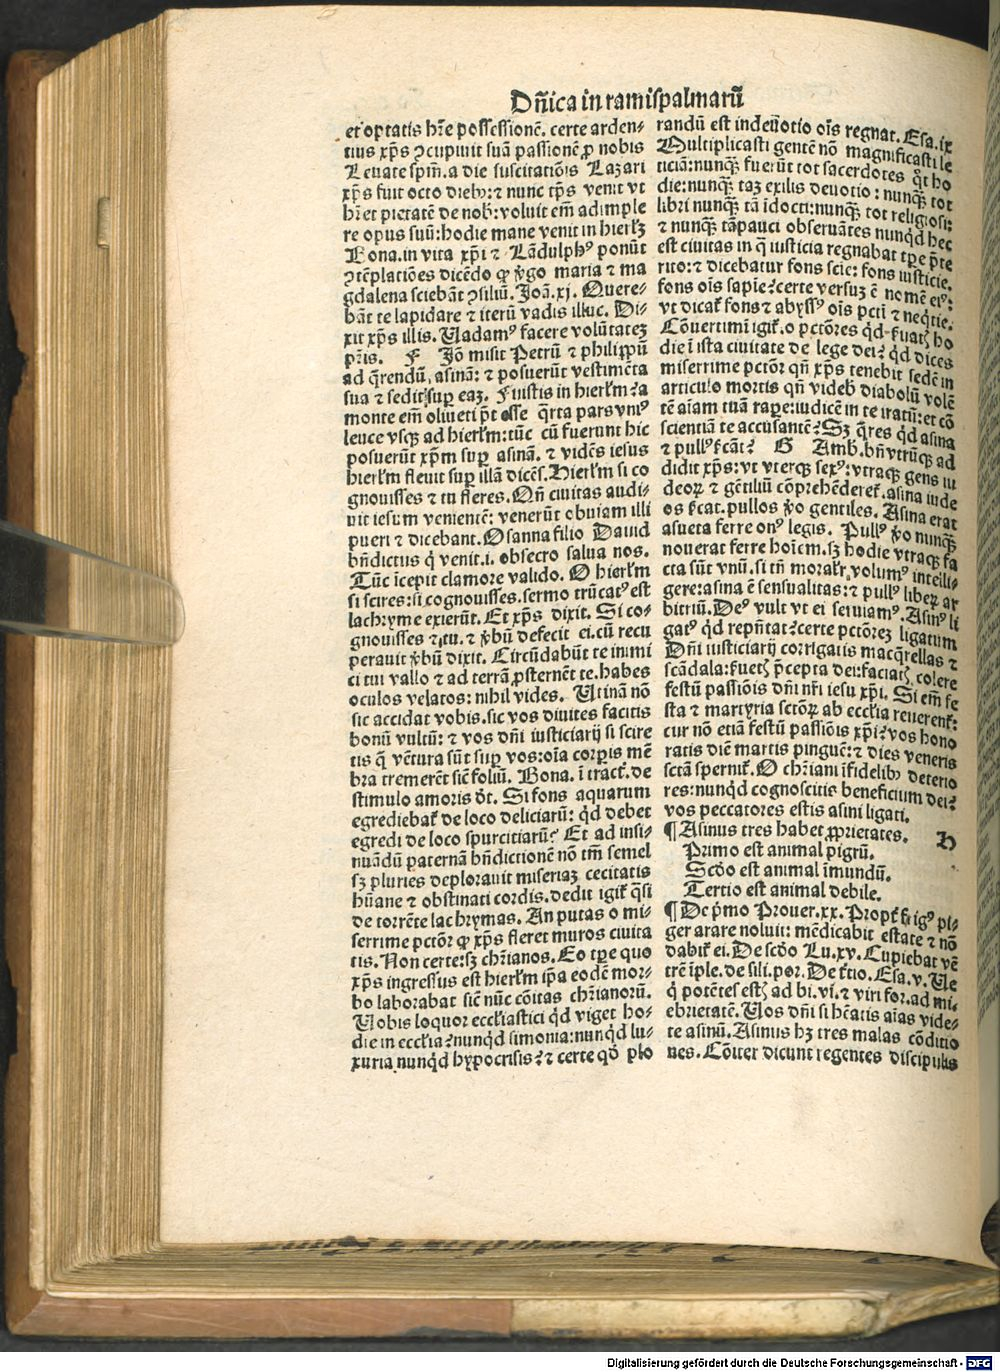 Dñica in ramispalmarū
et optatis hr̄e possessionē. certe arden-
tius xp̄s ꝯcupiuit suā passionē ꝓ nobis
Leuate spm̄. a die suscitatiōis Lazari
xp̄s fuit octo dieb⁹: ⁊ nunc tp̄s venit vt
hr̄et pietatē de nob̄: voluit em̄ adimple
re opus suū: hodie mane venit in hierl̄ꝫ
Bona. in vita xp̄i ⁊ Lādulph⁹ ponūt
ꝯtēplatiōes dicēdo ꝙ v̄go maria ⁊ ma
gdalena sciebāt ꝯsiliū. Joā. xj. Quere-
bāt te lapidare ⁊ iterū vadis illuc. Di-
xit xp̄s illis. Vadam⁹ facere volūtatez
pr̄is. F Jō misit Petrū ⁊ philippū
ad q̄rendū asinā: ⁊ posuerūt vestimēta
sua ⁊ sedit sup̱ eaz. Fuistis in hierl̄m? a
monte em̄ oliueti p̄t esse q̄rta pars vni⁹
leuce vsqꝫ ad hierl̄m: tūc cū fuerunt hic
posuerūt xp̄m sup̱ asinā. ⁊ vidēs iesus
hierl̄m fleuit sup̱ illā dicēs. Hierl̄m si co
gnouisses ⁊ tu fleres. Qn̄ ciuitas audi-
uit iesum venientē: venerūt obuiam illi
pueri ⁊ dicebant. Osanna filio Dauid
bn̄dictus q̇ venit .i. obsecro salua nos.
Tūc icepit clamore valido. O hierl̄m
si scires: si cognouisses. sermo trūcat⁹ est
lachryme exierūt. Et xp̄s dixit. Si co-
gnouisses ⁊ tu. ⁊ v̄bū defecit ei. cū recu
perauit v̄bū dixit. Circūdabūt te inimi
ci tui vallo ⁊ ad terrā ꝓsternēt te. habes
oculos velatos: nihil vides. Utinā nō
sic accidat vobis. sic vos diuites facitis
bonū vultū: ⁊ vos dn̄i iusticiarij si scire
tis q̄ vētura sūt sup̱ vos: oīa corp̱is mē
bra tremerēt sic̄ foliū. Bona. ī tract̄. de
stimulo amoris d̄t. Si fons aquarum
egrediebat̄ de loco deliciarū: qd̄ debet
egredi de loco spurcitiarū? Et ad insi-
nuādū paternā bn̄dictionē nō tm̄ semel
sꝫ pluries deplorauit miseriaꝫ cecitatis
hūane ⁊ obstinati cordis. dedit igit̄ q̄si
de torrēte lachrymas. An putas o mi-
serrime pctōr ꝙ xp̄s fleret muros ciuita
tis. Non certe: sꝫ chr̄ianos. Eo tp̱e quo
xp̄s ingressus est hierl̄m ip̄a eodē mor-
bo laborabat sic̄ nūc cōitas chr̄ianorū.
Vobis loquor eccl̄iastici qd̄ viget ho-
die in eccl̄ia? nunqd̄ simonia: nunqd̄ lu-
xuria nunqd̄ hypocrisis? ⁊ certe qd̄ plo
randū est indeuotio oīs regnat. Esa. ix
Multiplicasti gentē nō magnificasti le
ticiā: nunqꝫ fuerūt tot sacerdotes q̊t ho
die: nunqꝫ taꝫ exilis deuotio: nunqꝫ tot
libri nunqꝫ tā idocti: nunqꝫ tot religiosi:
⁊ nunqꝫ tāpauci obseruātes nunqd̄ hec
est ciuitas in q̄ iusticia regnabat tp̱e p̄te
rito: ⁊ dicebatur fons scic̄: fons iusticie.
fons oīs sapiē? certe versuꝫ ē nomē ei⁹:
vt dicat̄ fons ⁊ abyss⁹ oīs pcti ⁊ neq̄tie.
Cōuertimī igit̄. o pctōres qd̄ ẜuatꝫ ho
die ī ista ciuitate de lege dei? qd̄ dices
miserrime pctōr qn̄ xp̄s tenebit sedē in
articulo mortis qn̄ videb̄ diabolū volē
tē aīam tuā rap̱e: iudicē in te iratū: et cō
scientiā te accusantē? Sꝫ q̄res qd̄ asina
⁊ pull⁹ ſcāt? G Amb. bn̄ vtrūqꝫ ad
didit xp̄s: vt vterqꝫ sex⁹: vtraqꝫ gens iu
deoꝝ ⁊ gētiliū cōprehēderet̄. asina iude
os ſcat. pullos v̄o gentiles. Asina erat
asueta ferre on⁹ legis. Pull⁹ v̄o nunqꝫ
nouerat ferre hoīem. sꝫ hodie vtraqꝫ fa
cta sūt vnū. si tn̄ moralr̄ volum⁹ intelli-
gere: asina ē sensualitas: ⁊ pull⁹ liberꝝ ar
bitriū. De⁹ vult vt ei seruiam⁹. Asin⁹ li
gat⁹ qd̄ repn̄tat? certe pctōrez ligatum
Dn̄i iusticiarij corrigatis macq̄rellas ⁊
scādala: ẜuetꝫ p̄cepta dei: faciatꝫ colere
festū passiōis dn̄i nr̄i iesu xp̄i. Si em̄ fe
sta ⁊ martyria sctōꝝ ab eccl̄ia reuerent̄:
cur nō etiā festū passiōis xp̄i? vos hono
ratis diē martis pinguē: ⁊ dies veneris
sctā spernit̄. O chr̄iani īfidelib⁹ deterio
res: nunqd̄ cognoscitis beneficium dei?
vos peccatores estis asini ligati.
¶ Asinus tres habet ꝓprietates. H
Primo est animal pigrū.
Scdo est animal īmundū.
Tertio est animal debile.
¶ De p̄mo Prouer. xx. Propt̄ frig⁹ pi-
ger arare noluit: mēdicabit estate ⁊ nō
dabit̄ ei. De scdo Lu. xv. Cupiebat vē
trē īple. de sili. por. De t̄tio. Esa. v. Ue
q̇ potētes estꝫ ad bi. vi. ⁊ viri for. ad mi.
ebrietatē. Uos dn̄i si hēatis aīas vide-
te asinū. Asinus hꝫ tres malas cōditio
nes. Cōiter dicunt regentes discipulis
Digitalisierung gefördert durch die Deutsche Forschungsgemeinschaft - DFG